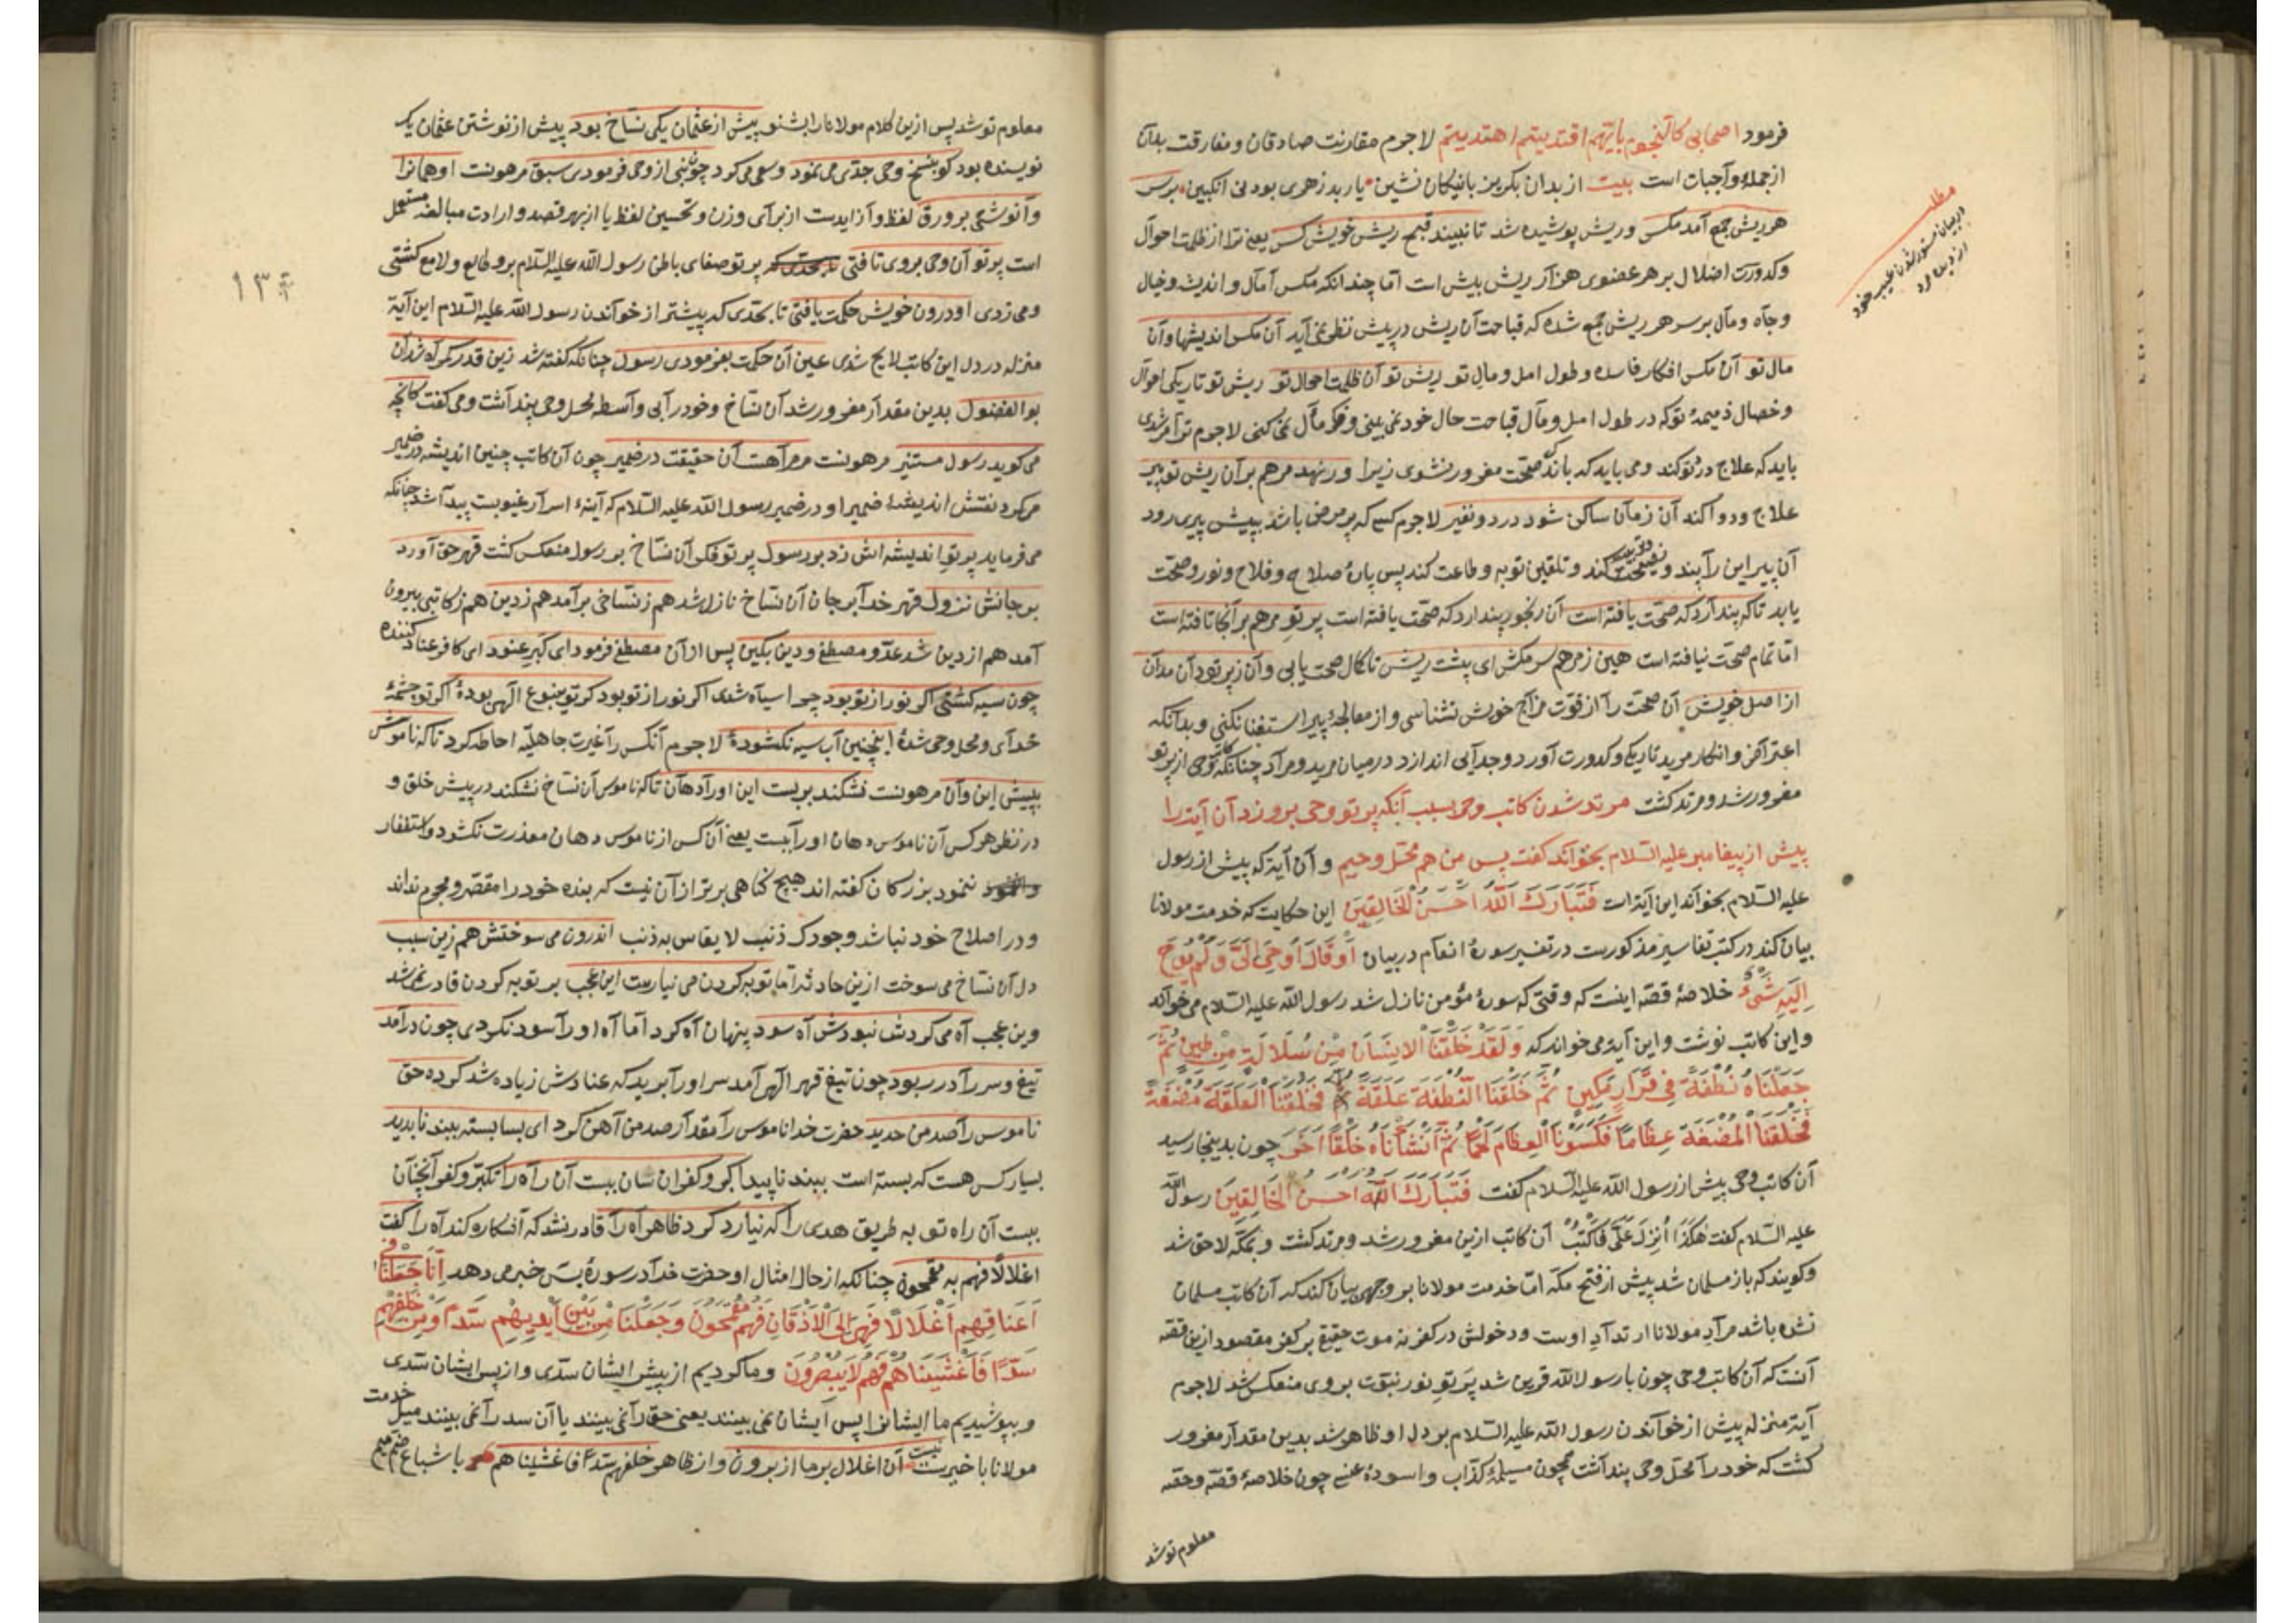 فرمود اصحابی کالنجوم بایهم اقتدیتم اهتدیتم لاجرم مقارنت صادقان و مفارقت بدان
از جملهٔ واجبات است بیت از بدان بگریز با نیکان نشین یار بد زهری بود نی انگبین برسر
هر ریش جمع آمد مکس و ریش پوشیده شد تا نبیند قبح ریش خویش کس یعنی ترا از ظلمت احوال
و کدورت اضلال بر هر عضوی هزار ریش بیش است اما چندانکه مکس آمال و اندیشه و خیال
و جاه و مال بر سر هر ریش جمع شده که قباحت آن ریش در پیش نظر نمی آید آن مکس اندیشها و آن
مال تو آن مکس افکار فاسده و طول امل و مال تو ریش تو آن ظلمت احوال تو ریش تو تاریکی احوال
و خصال ذمیمهٔ تو که در طول امل و مآل قباحت حال خود نمی بینی و فکر مآل نمی کنی لاجرم ترا مرشدی
باید که علاج درد تو کند و می باید که باندک صحت مغرور نشوی زیرا ور نهد مرهم بر آن ریش تو پیر
علاج و دوا کند آن زمان ساکن شود درد و نفیر لاجرم کسی که پر مرض باشد پیش پیری رود
آن پیر این را پند و نصیحت کند و تلقین توبه و طاعت کند پس پارهٔ صلاح و فلاح و نور و صحت
یابد تا که پندارد که صحت یافته است آن رنجور پندارد که صحت یافته است پرتو مرهم بر آنجا تافته است
اما تمام صحت نیافته است هین ز مرهم سر مکش ای پشت ریش تا کمال صحت یابی و آن ز پرتو دان مدان
از اصل خویش آن صحت را از قوت مزاج خویش نشناسی و از معالجهٔ پیر استغنا نکنی و بدانکه
اعتراض و انکار مرید تاریکی و کدورت آورد و جدایی اندازد در میان مرید و مراد چنانکه کاتب وحی از پرتو
مغرور شد و مرتد کشت مرتد شدن کاتب وحی بسبب آنکه پرتو وحی برو زد آن آیة را
پیش از پیغامبر علیه السلام بخواند کفت پس من هم محل وحیم و آن آیة که پیش از رسول
علیه السلام بخواند این آیة است فَتَبَارَكَ اللّٰهُ اَحْسَنُ الْخَالِقِینَ این حکایت که خدمت مولانا
بیان کند در کتب تفاسیر مذکورست در تفسیر سورهٔ انعام در بیان اَوْ قَالَ اُوحِیَ اِلَیَّ وَلَمْ یُوحَ
اِلَیْهِ شَیْءٌ خلاصهٔ قصه اینست که وقتی که سورهٔ مؤمن نازل شد رسول الله علیه السلام می خواند
و این کاتب نوشت و این آیة می خواند که وَلَقَدْ خَلَقْنَا الْاِنْسَانَ مِنْ سُلَالَةٍ مِنْ طِینٍ ثُمَّ
جَعَلْنَاهُ نُطْفَةً فِی قَرَارٍ مَکِینٍ ثُمَّ خَلَقْنَا النُّطْفَةَ عَلَقَةً فَخَلَقْنَا الْعَلَقَةَ مُضْغَةً
فَخَلَقْنَا الْمُضْغَةَ عِظَامًا فَکَسَوْنَا الْعِظَامَ لَحْمًا ثُمَّ اَنْشَأْنَاهُ خَلْقًا آخَرَ چون بدینجا رسید
آن کاتب وحی پیش از رسول الله علیه السلام کفت فَتَبَارَكَ اللّٰهُ اَحْسَنُ الْخَالِقِینَ رسول الله
علیه السلام کفت هٰکَذَا اُنْزِلَ عَلَیَّ فَاکْتُبْ آن کاتب ازین مغرور شد و مرتد کشت و بمکه لاحق شد
و کویند که باز مسلمان شد پیش از فتح مکه اما خدمت مولانا بر وجهی بیان کند که آن کاتب مسلمان
نشده باشد مراد مولانا ارتداد اوست و دخولش در کفر نه موت حقیقی بر کفر مقصود ازین قصه
آنست که آن کاتب وحی چون با رسول الله قرین شد پرتو نور نبوت بر وی منعکس شد لاجرم
آیة منزله پیش از خواندن رسول الله علیه السلام بر دل او ظاهر شد بدین مقدار مغرور
کشت که خود را محل وحی پنداشت همچون مسیلمهٔ کذاب و اسودهٔ عنسی چون خلاصهٔ قصه و حقه
معلوم تو شد
مطلب
در بیان مستور شدن عیب خود
از دیدهٔ مرد
معلوم تو شد پس ازین کلام مولانا را بشنو پیش از عثمان یکی نساخ بود پیش از نوشتن عثمان یک
نویسنده بود کو بنسخ وحی جدی می نمود و سعی می کرد چون نبی از وحی فرمودی سبق مرهونست او همانرا
وانوشتی بر ورق لفظ وا زایدست از برای وزن و تحسین لفظ یا از بهر قصد و ارادت مبالغه مستعمل
است پرتو آن وحی بر وی تافتی پرتو صفای باطن رسول الله علیه السلام برو طالع و لامع کشتی
و می زدی او درون خویش حکمت یافتی تا بحدی که پیشتر از خواندن رسول الله علیه السلام این آیة
منزله در دل این کاتب لایح شدی عین آن حکمت بفرمودی رسول چنانکه کفته شد زین قدر کمراه شد آن
بوالفضول بدین مقدار مغرور شد آن نساخ و خود رایی واسطه محل وحی پنداشت و می کفت کانچه
می کوید رسول مستنیر مرهونست مر مرا هست آن حقیقت در ضمیر چون آن کاتب چنین اندیشه در ضمیر
می کرد نقش اندیشهٔ ضمیر او در ضمیر رسول الله علیه السلام که آینهٔ اسرار غیوبست پیدا شد چنانکه
می فرماید پرتو اندیشه اش زد بر رسول پرتو فکر آن نساخ بر رسول منعکس کشت قهر حق آورد
بر جانش نزول قهر خدا بر جان آن نساخ نازل شد هم ز نساخی برآمد هم ز دین هم ز کاتبی بیرون
آمد هم از دین شد عدو مصطفی و دین بکین پس از آن مصطفی فرمود ای کبر عنود ای کافر عناد کننده
چون سیه کشتی اکر نور از تو بود چرا سیاه شدی اکر نور از تو بود کر تو ینبوع الهی بودهٔ اکر تو چشمهٔ
خدای و محل وحی شدهٔ اینچنین آب سیه نکشودهٔ لاجرم آنکس را غیرت جاهلیه احاطه کرد تا که ناموسش
بپیش این و آن مرهونست نشکند بربست این او را دهان تا که ناموس آن نساخ نشکند در پیش خلق و
در نظر هر کس آن ناموس دهان او را ببست یعنی آن کس از ناموس دهان معذرت نکشود و استغفار
ننمود بزرکان کفته اند هیچ کناهی برتر از آن نیست که بنده خود را مقصر و مجرم نداند
و در اصلاح خود نباشد وجودک ذنب لا یقاس به ذنب اندرون می سوختش هم زین سبب
دل آن نساخ می سوخت ازین حادثه اما توبه کردن می نیارست این عجب بر توبه کردن قادر نمی شد
وین عجب آه می کرد نبودش آه سود پنهان آه کرد اما آه او را سود نکردی چون درآمد
تیغ و سر را در ربود چون تیغ قهر الهی آمد سر او را برید که عنادش زیاده شد کرده حق
ناموس را صد من حدید حضرت خدا ناموس را مقدار صد من آهن کرد ای بسا بسته ببند ناپدید
بسیار کس هست که بسته است ببند ناپیدا کبر و کفر ان سان ببست آن راه را تکبر و کفر آنچنان
ببست آن راه توبه طریق هدی را که نیارد کرد ظاهر آه را قادر نشد که آشکاره کند آه را کفت
اغلالا فهم به مقمحون چنانکه از حال امثال او حضرت خدا در سورهٔ یس خبر می دهد اِنَّا جَعَلْنَا فِی
اَعْنَاقِهِمْ اَغْلَالًا فَهِیَ اِلَی الْاَذْقَانِ فَهُمْ مُقْمَحُونَ وَجَعَلْنَا مِنْ بَیْنِ اَیْدِیهِمْ سَدًّا وَمِنْ خَلْفِهِمْ
سَدًّا فَاَغْشَیْنَاهُمْ فَهُمْ لَا یُبْصِرُونَ و ما کردیم از پیش ایشان سدی و از پس ایشان سدی
و بپوشیدیم ما ایشانرا پس ایشان نمی بینند یعنی حق را نمی بینند یا آن سد را نمی بینند میل خدمت
مولانا با خیرست نیست آن اغلال بر ما از برون و از ظاهر خلفهم سدا فاغشیناهم با شباع ضم میم
١٣